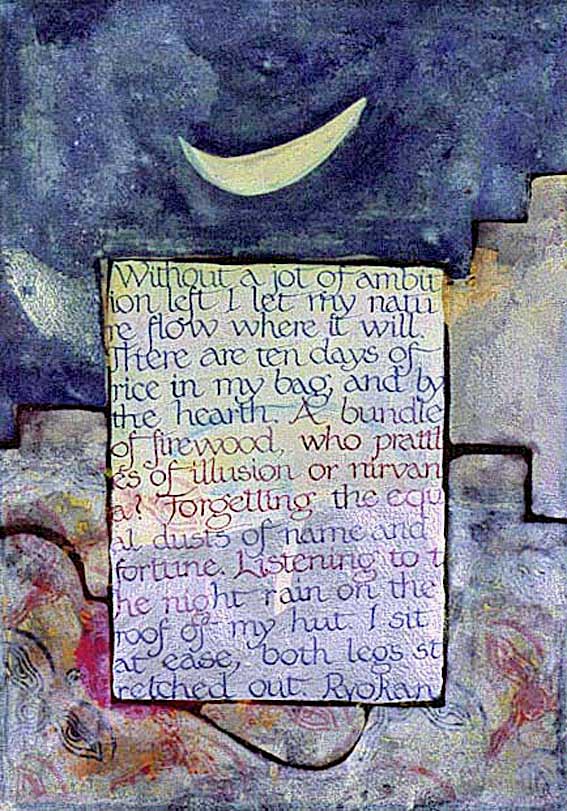 Without a jot of ambit
ion left I let my natu
re flow where it will.
There are ten days of
rice in my bag, and by
the hearth. A bundle
of firewood, who prattl
es of illusion or nirvan
a? Forgetting the equ
al dusts of name and
fortune. Listening to t
he night rain on the
roof of my hut I sit
at ease, both legs st
retched out. Ryokan